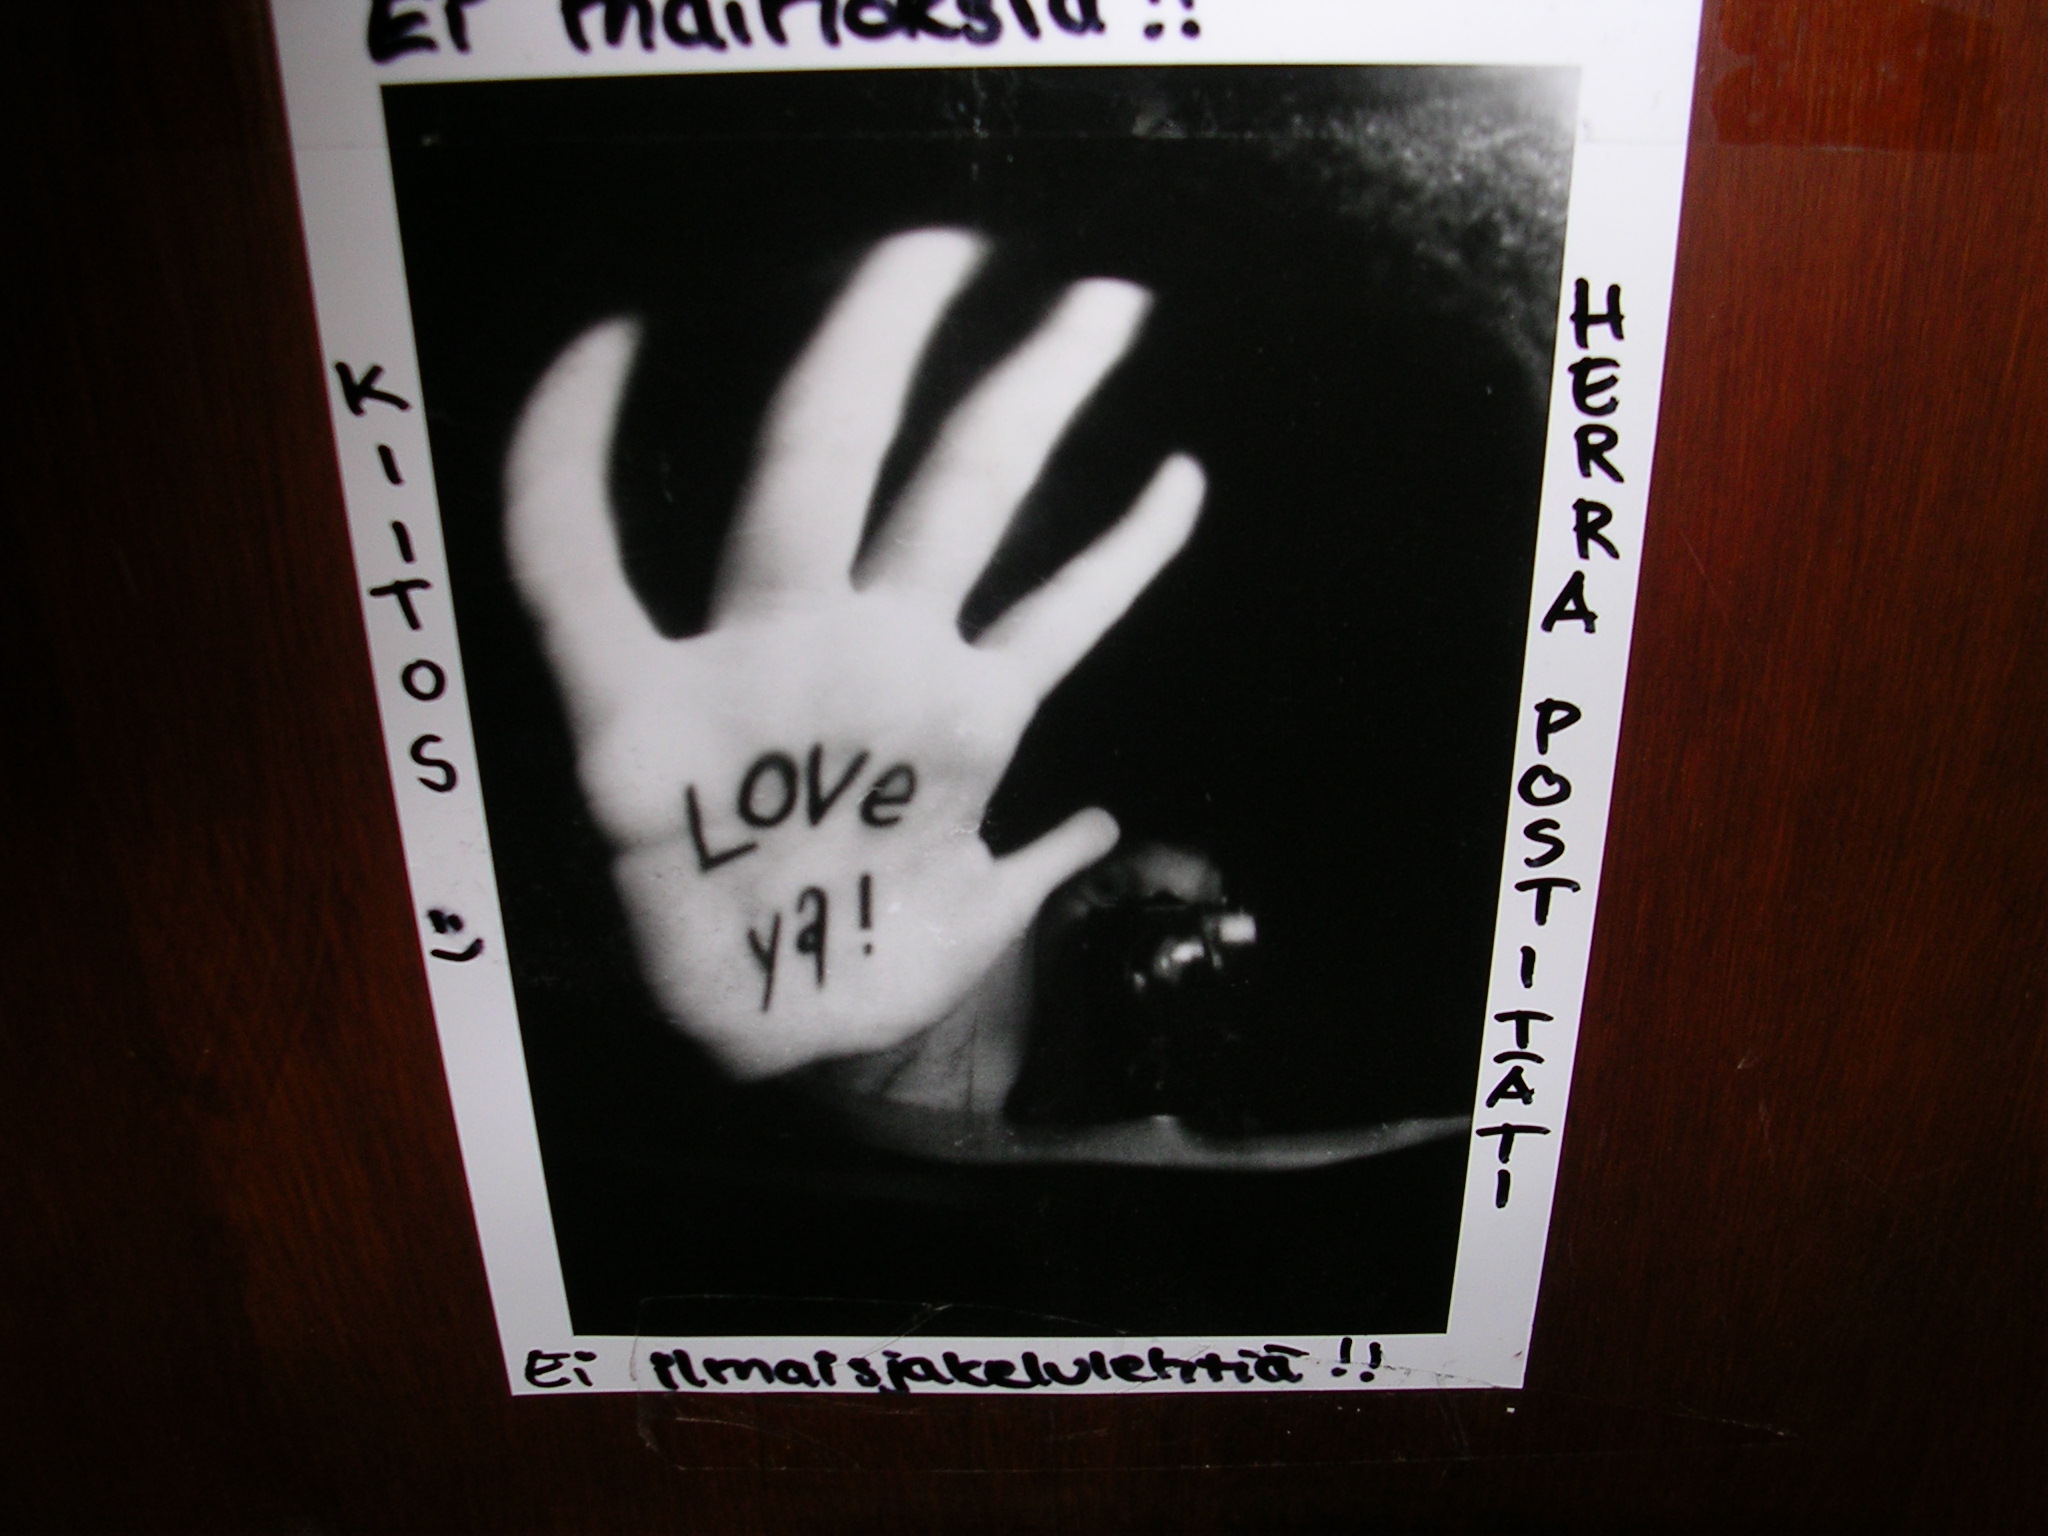 Ei mainoksia!!
KIITOS
HERRA POSTITÄTI
LOVe
ya!
Ei ilmaisjakelulehtiä!!